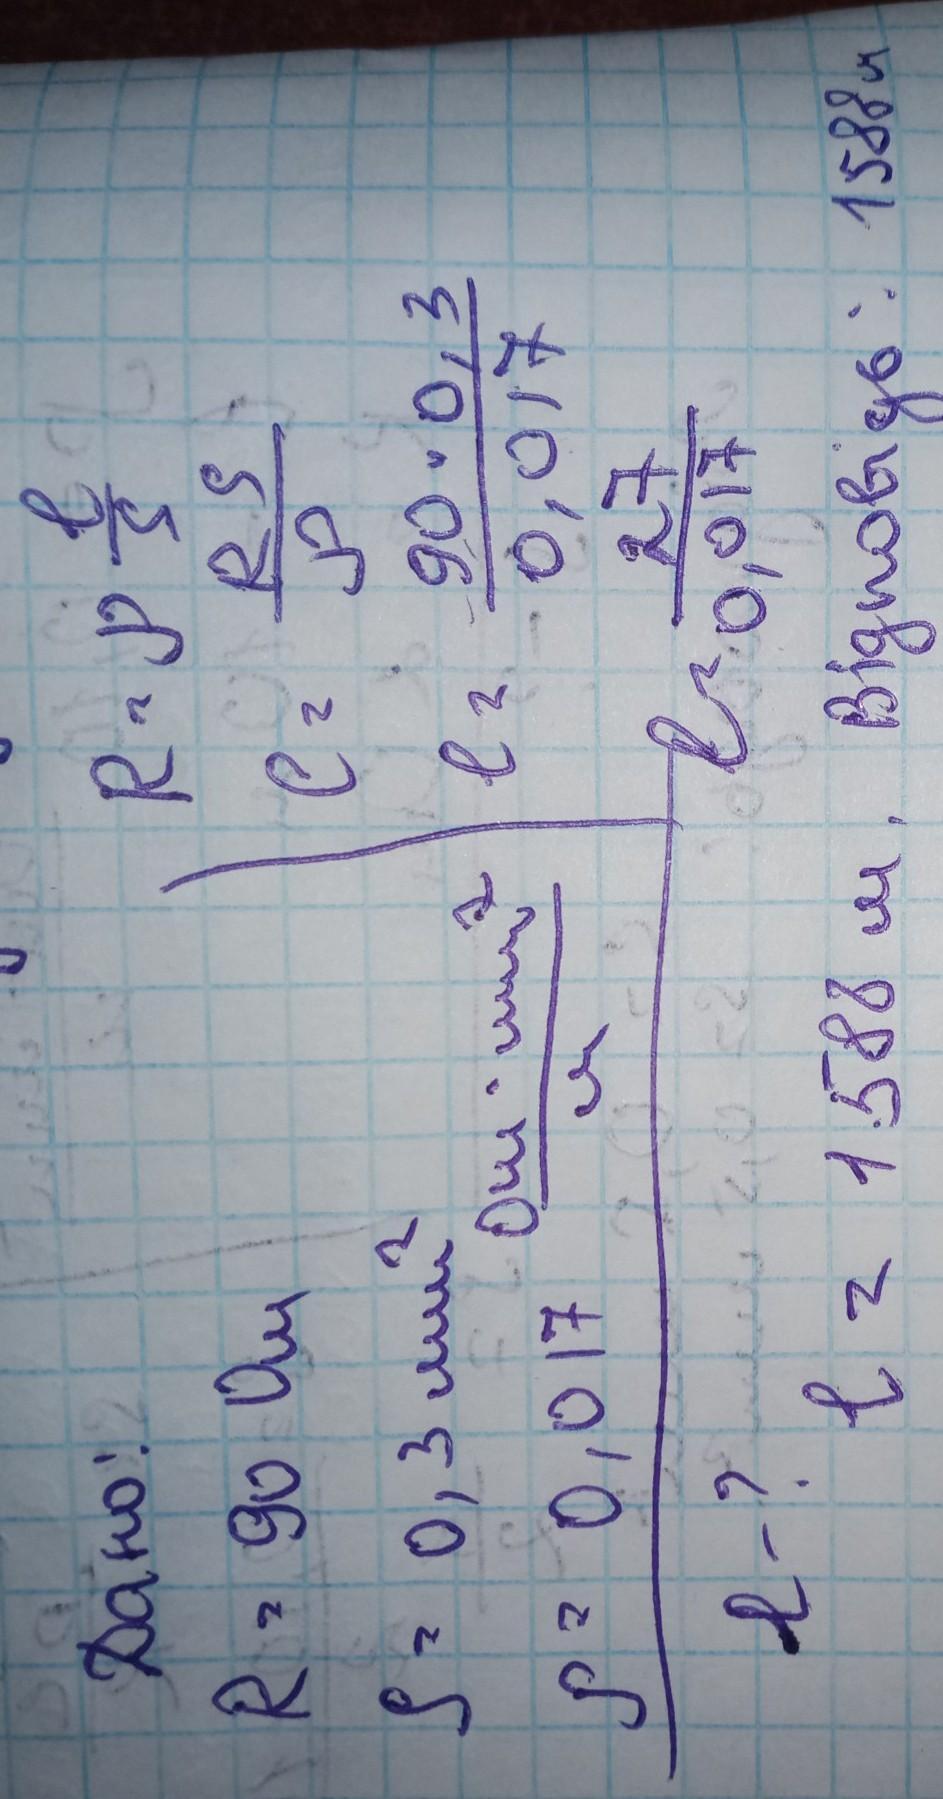 Дано:
R = 90 Ом
S = 0,3 мм²
ρ = 0,017 Ом·мм²/м
l - ?
R = ρ l/S
l = RS/ρ
l = 90·0,3/0,017
l = 27/0,017
l = 1588 м. Відповідь: 1588м